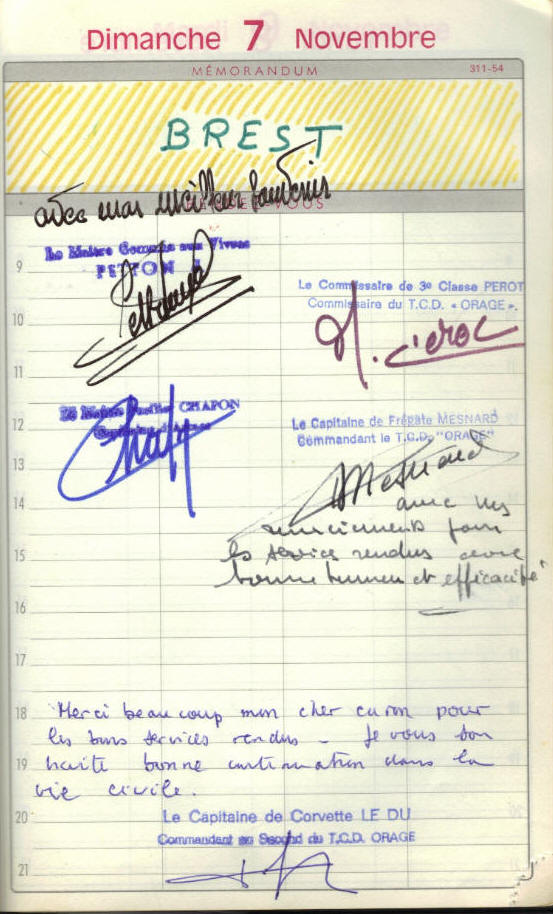 Dimanche 7 Novembre
MÉMORANDUM 311-54
BREST
avec mes meilleurs souvenirs
Le Maître Commis aux Vivres
PETTON
9
Le Commissaire de 3e Classe PEROT
Commissaire du T.C.D. « ORAGE ».
10
11
Maître Fusilier CHAPON
Capitaine d'Armes
12
Le Capitaine de Frégate MESNARD
Commandant le T.C.D. "ORAGE"
13
Mesnard
14
avec mes
remerciements pour
15
les services rendus avec
bonne humeur et efficacité
16
17
18
Merci beaucoup mon cher caron pour
les bons services rendus - Je vous sou
19
haite bonne continuation dans la
vie civile.
20
Le Capitaine de Corvette LE DU
Commandant en Second du T.C.D. ORAGE
21